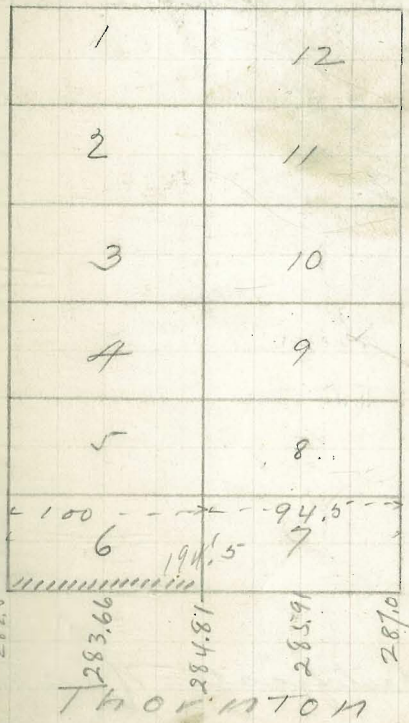 1 12
2 11
3 10
4 9
5 8
100 94.5
6 7
194.5
283.66 284.81 285.91 287.0
Thornton